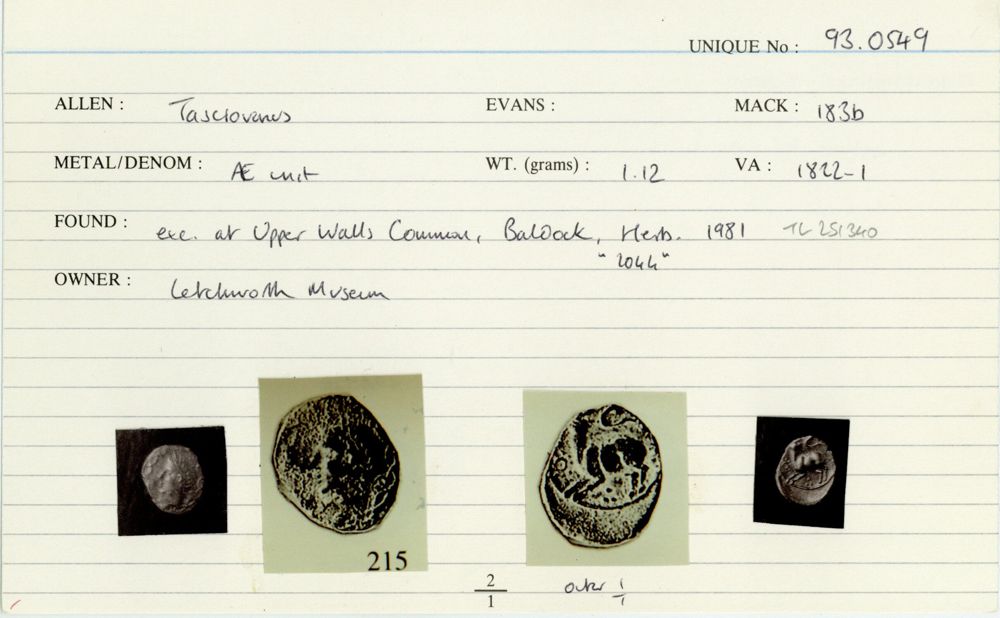 UNIQUE No : 93.0549
ALLEN : Tasciovanus EVANS : MACK : 183b
METAL/DENOM : Æ unit WT. (grams) : 1.12 VA : 1822-1
FOUND : exc. at Upper Walls Common, Baldock, Herts. 1981 TL 251340
"2044"
OWNER : Letchworth Museum
215
2/1 outer 1/1